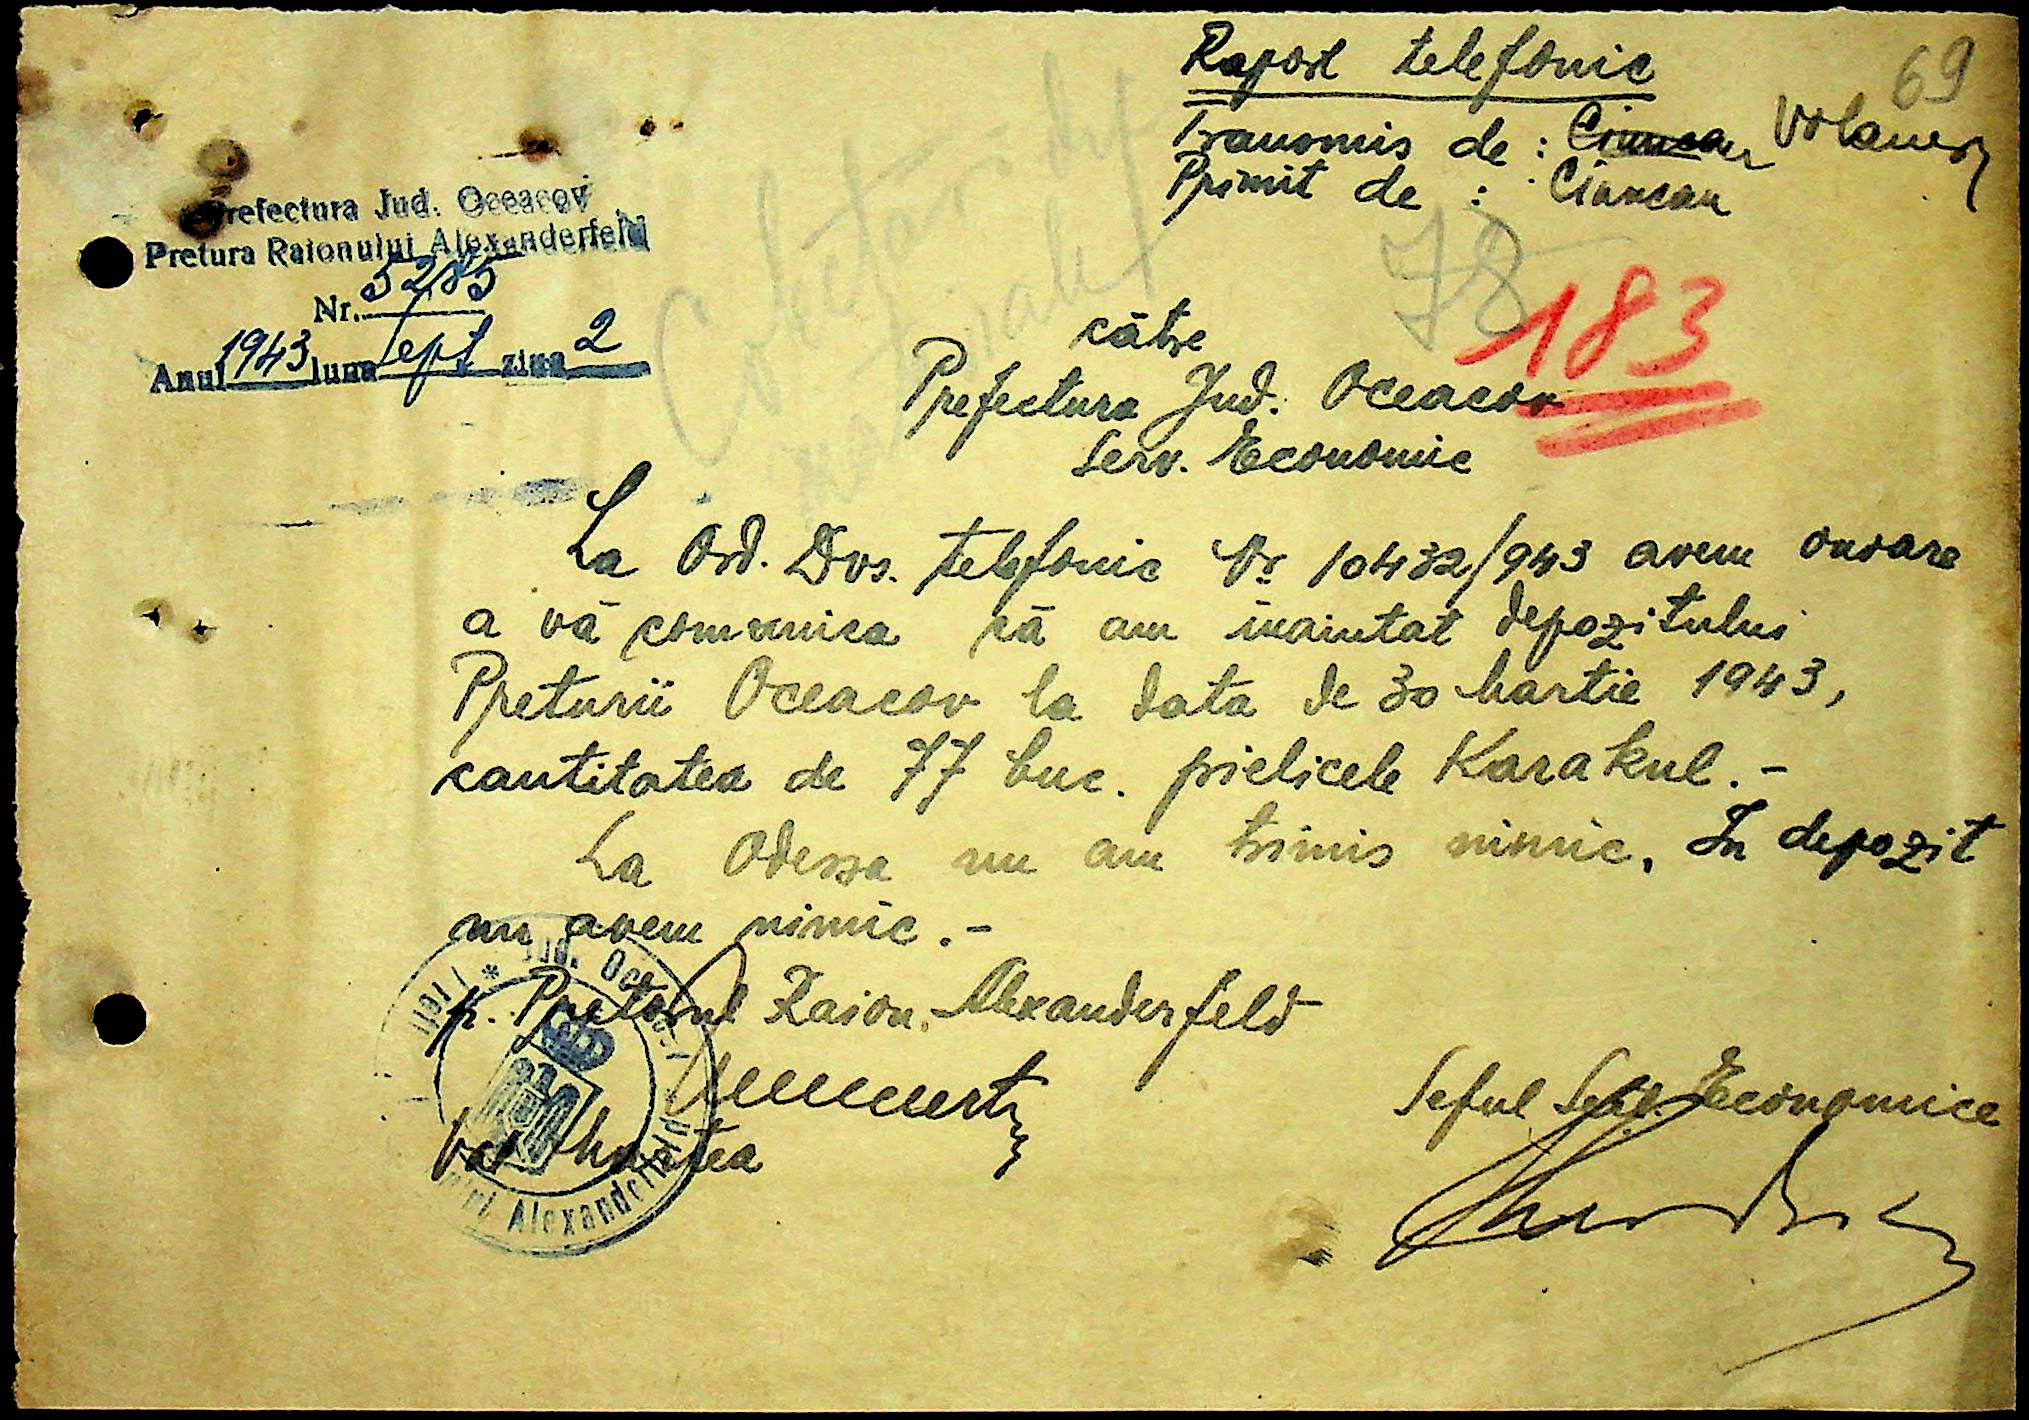 Raport telefonic
69
Transmis de : Ciuncan Volaner
Primit de : Ciuncan
Prefectura Jud. Oceacov
Pretura Raionului Alexanderfeld
Nr. 5285
Anul 1943 luna Sept ziua 2
78
183
către
Prefectura Jud. Oceacov
Serv. Economic
La Ord. Dvs. telefonic Nr 10432/943 avem onoare
a vă comunica că am înaintat depozitului
Preturii Oceacov la data de 30 Martie 1943,
cantitatea de 77 buc. pielicele Karakul.-
La Odessa nu am trimis nimic. In depozit
nu avem nimic.-
p. Pretorul Raion. Alexanderfeld
Seful Serv. Economice
Jud.
Alexanderfeld